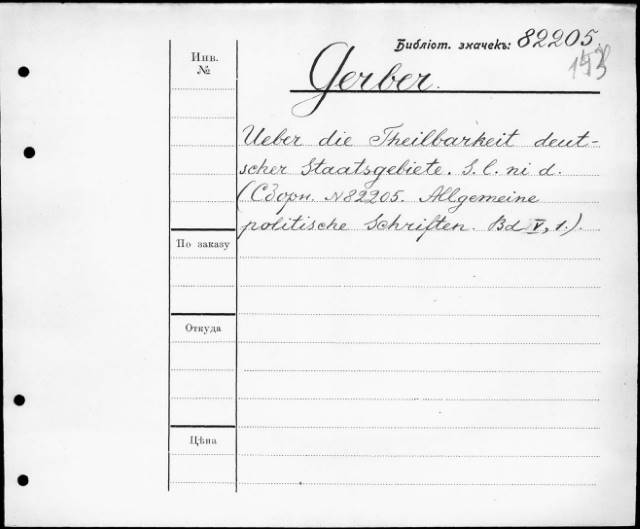 Библіот. значекъ: 82205.
Инв.
№
Gerber.
Ueber die Theilbarkeit deut-
scher Staatsgebiete. S. l. ni d.
(Сборн. №82205. Allgemeine
politische Schriften. Bd V, 1.).
По заказу
Откуда
Цѣна